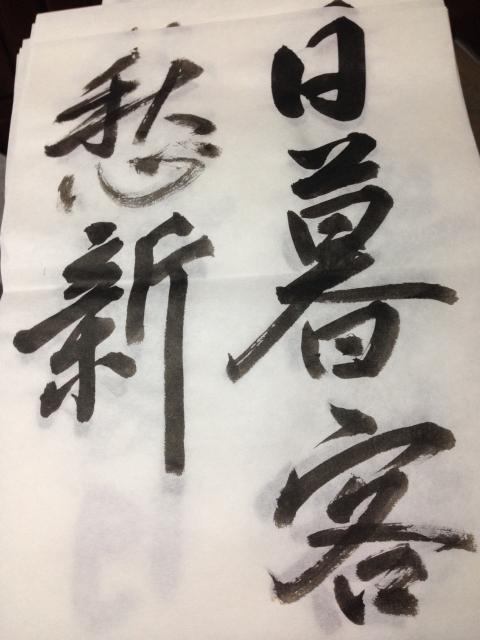 日暮客
愁新